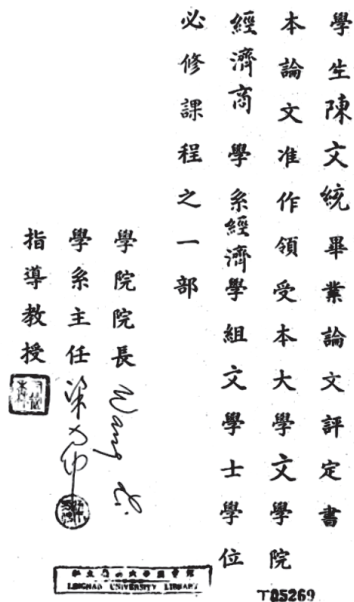 學生陳文統畢業論文評定書
本論文准作領受本大學文學院
經濟商學系經濟學組文學士學位
必修課程之一部
學院院長 Wang Li
學系主任
指導教授
LINGNAN UNIVERSITY LIBRARY
T05269